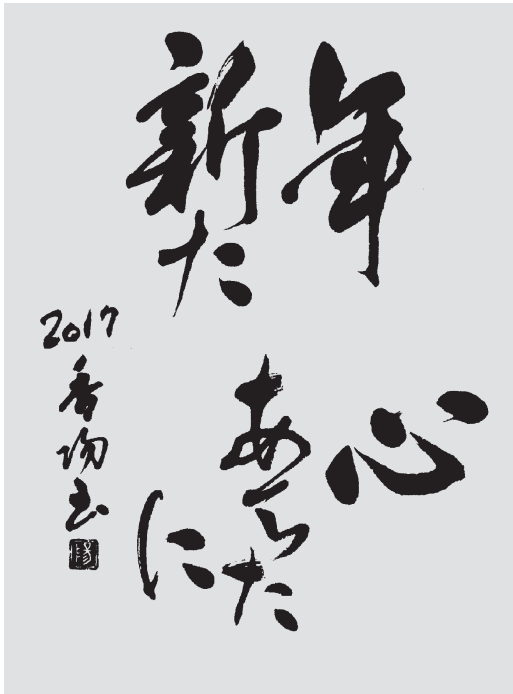 年
新た
心
あらた
に
2017
香
書